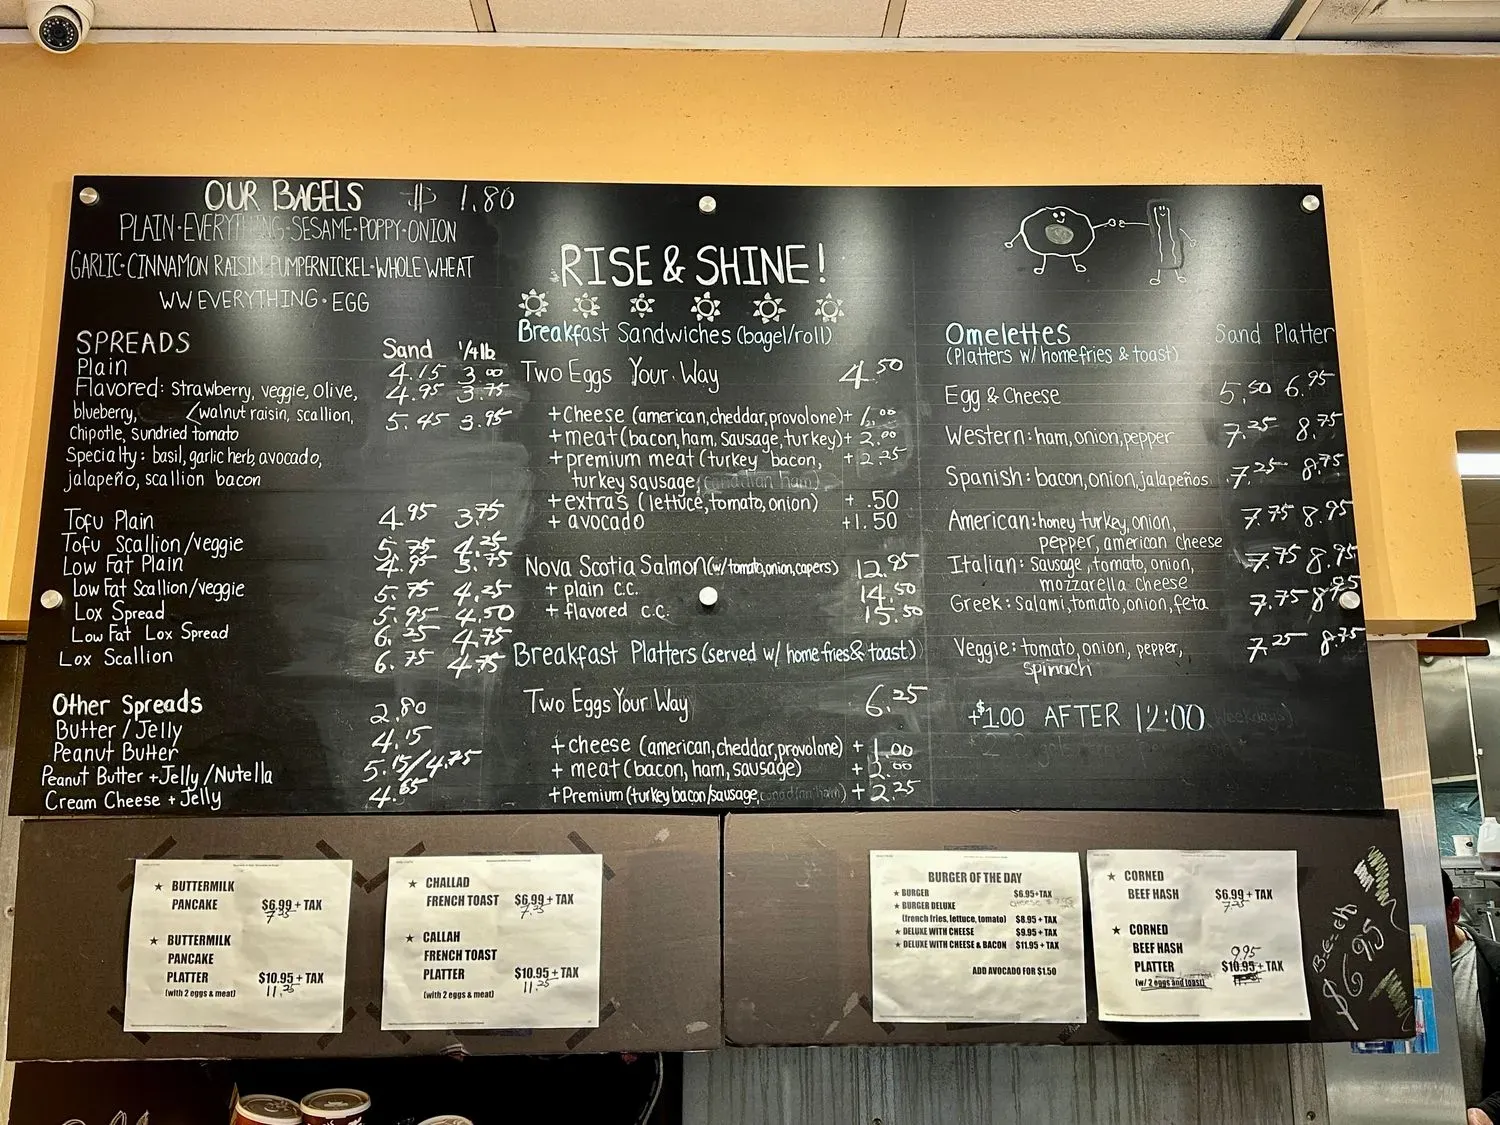 OUR BAGELS $ 1.80
PLAIN·EVERYTHING·SESAME·POPPY·ONION
GARLIC·CINNAMON RAISIN·PUMPERNICKEL·WHOLE WHEAT
WW EVERYTHING·EGG
SPREADS Sand 1/4 lb
Plain 4.15 3.00
Flavored: Strawberry, veggie, olive, 4.95 3.75
blueberry, walnut raisin, scallion, 5.45 3.95
Chipotle, sundried tomato
Specialty: basil, garlic herb, avocado,
jalapeño, scallion bacon
Tofu Plain 4.95 3.75
Tofu Scallion/veggie 5.75 4.25
Low Fat Plain 4.95 3.75
Low Fat Scallion/veggie 5.75 4.25
Lox Spread 5.95 4.50
Low Fat Lox Spread 6.25 4.75
Lox Scallion 6.75 4.75
Other Spreads
Butter/Jelly 2.80
Peanut Butter 4.15
Peanut Butter+Jelly/Nutella 5.15/4.75
Cream Cheese + Jelly 4.65
RISE & SHINE!
Breakfast Sandwiches (bagel/roll)
Two Eggs Your Way 4.50
+cheese (american, cheddar, provolone) + 1.00
+meat (bacon, ham, sausage, turkey) + 2.00
+premium meat (turkey bacon, + 2.25
turkey sausage, canadian ham)
+extras (lettuce, tomato, onion) + .50
+ avocado +1.50
Nova Scotia Salmon (w/ tomato, onion, capers) 12.95
+ plain c.c. 14.50
+ flavored c.c. 15.50
Breakfast Platters (served w/ home fries & toast)
Two Eggs Your Way 6.25
+cheese (american, cheddar, provolone) + 1.00
+ meat (bacon, ham, sausage) + 2.00
+Premium (turkey bacon/sausage, canadian ham) + 2.25
Omelettes Sand Platter
(Platters w/ homefries & toast)
Egg & Cheese 5.50 6.95
Western: ham, onion, pepper 7.25 8.75
Spanish: bacon, onion, jalapeños 7.25 8.75
American: honey turkey, onion, 7.75 8.95
pepper, american cheese
Italian: Sausage, tomato, onion, 7.75 8.95
mozzarella cheese
Greek: Salami, tomato, onion, feta 7.75 8.95
Veggie: tomato, onion, pepper, 7.25 8.75
spinach
+$1.00 AFTER 12:00 (weekdays)
★ BUTTERMILK
PANCAKE $6.99 + TAX
7.25
★ BUTTERMILK
PANCAKE
PLATTER $10.95 + TAX
(with 2 eggs & meat) 11.25
★ CHALLAD
FRENCH TOAST $6.99 + TAX
7.25
★ CALLAH
FRENCH TOAST
PLATTER $10.95 + TAX
(with 2 eggs & meat) 11.25
BURGER OF THE DAY
★ BURGER $6.95+TAX
★ BURGER DELUXE cheese $7.95
(french fries, lettuce, tomato) $8.95 + TAX
★ DELUXE WITH CHEESE $9.95 + TAX
★ DELUXE WITH CHEESE & BACON $11.95 + TAX
ADD AVOCADO FOR $1.50
★ CORNED
BEEF HASH $6.99 + TAX
7.25
★ CORNED
BEEF HASH 9.95
PLATTER $10.95 + TAX
(w/ 2 eggs and toast)
$6.95